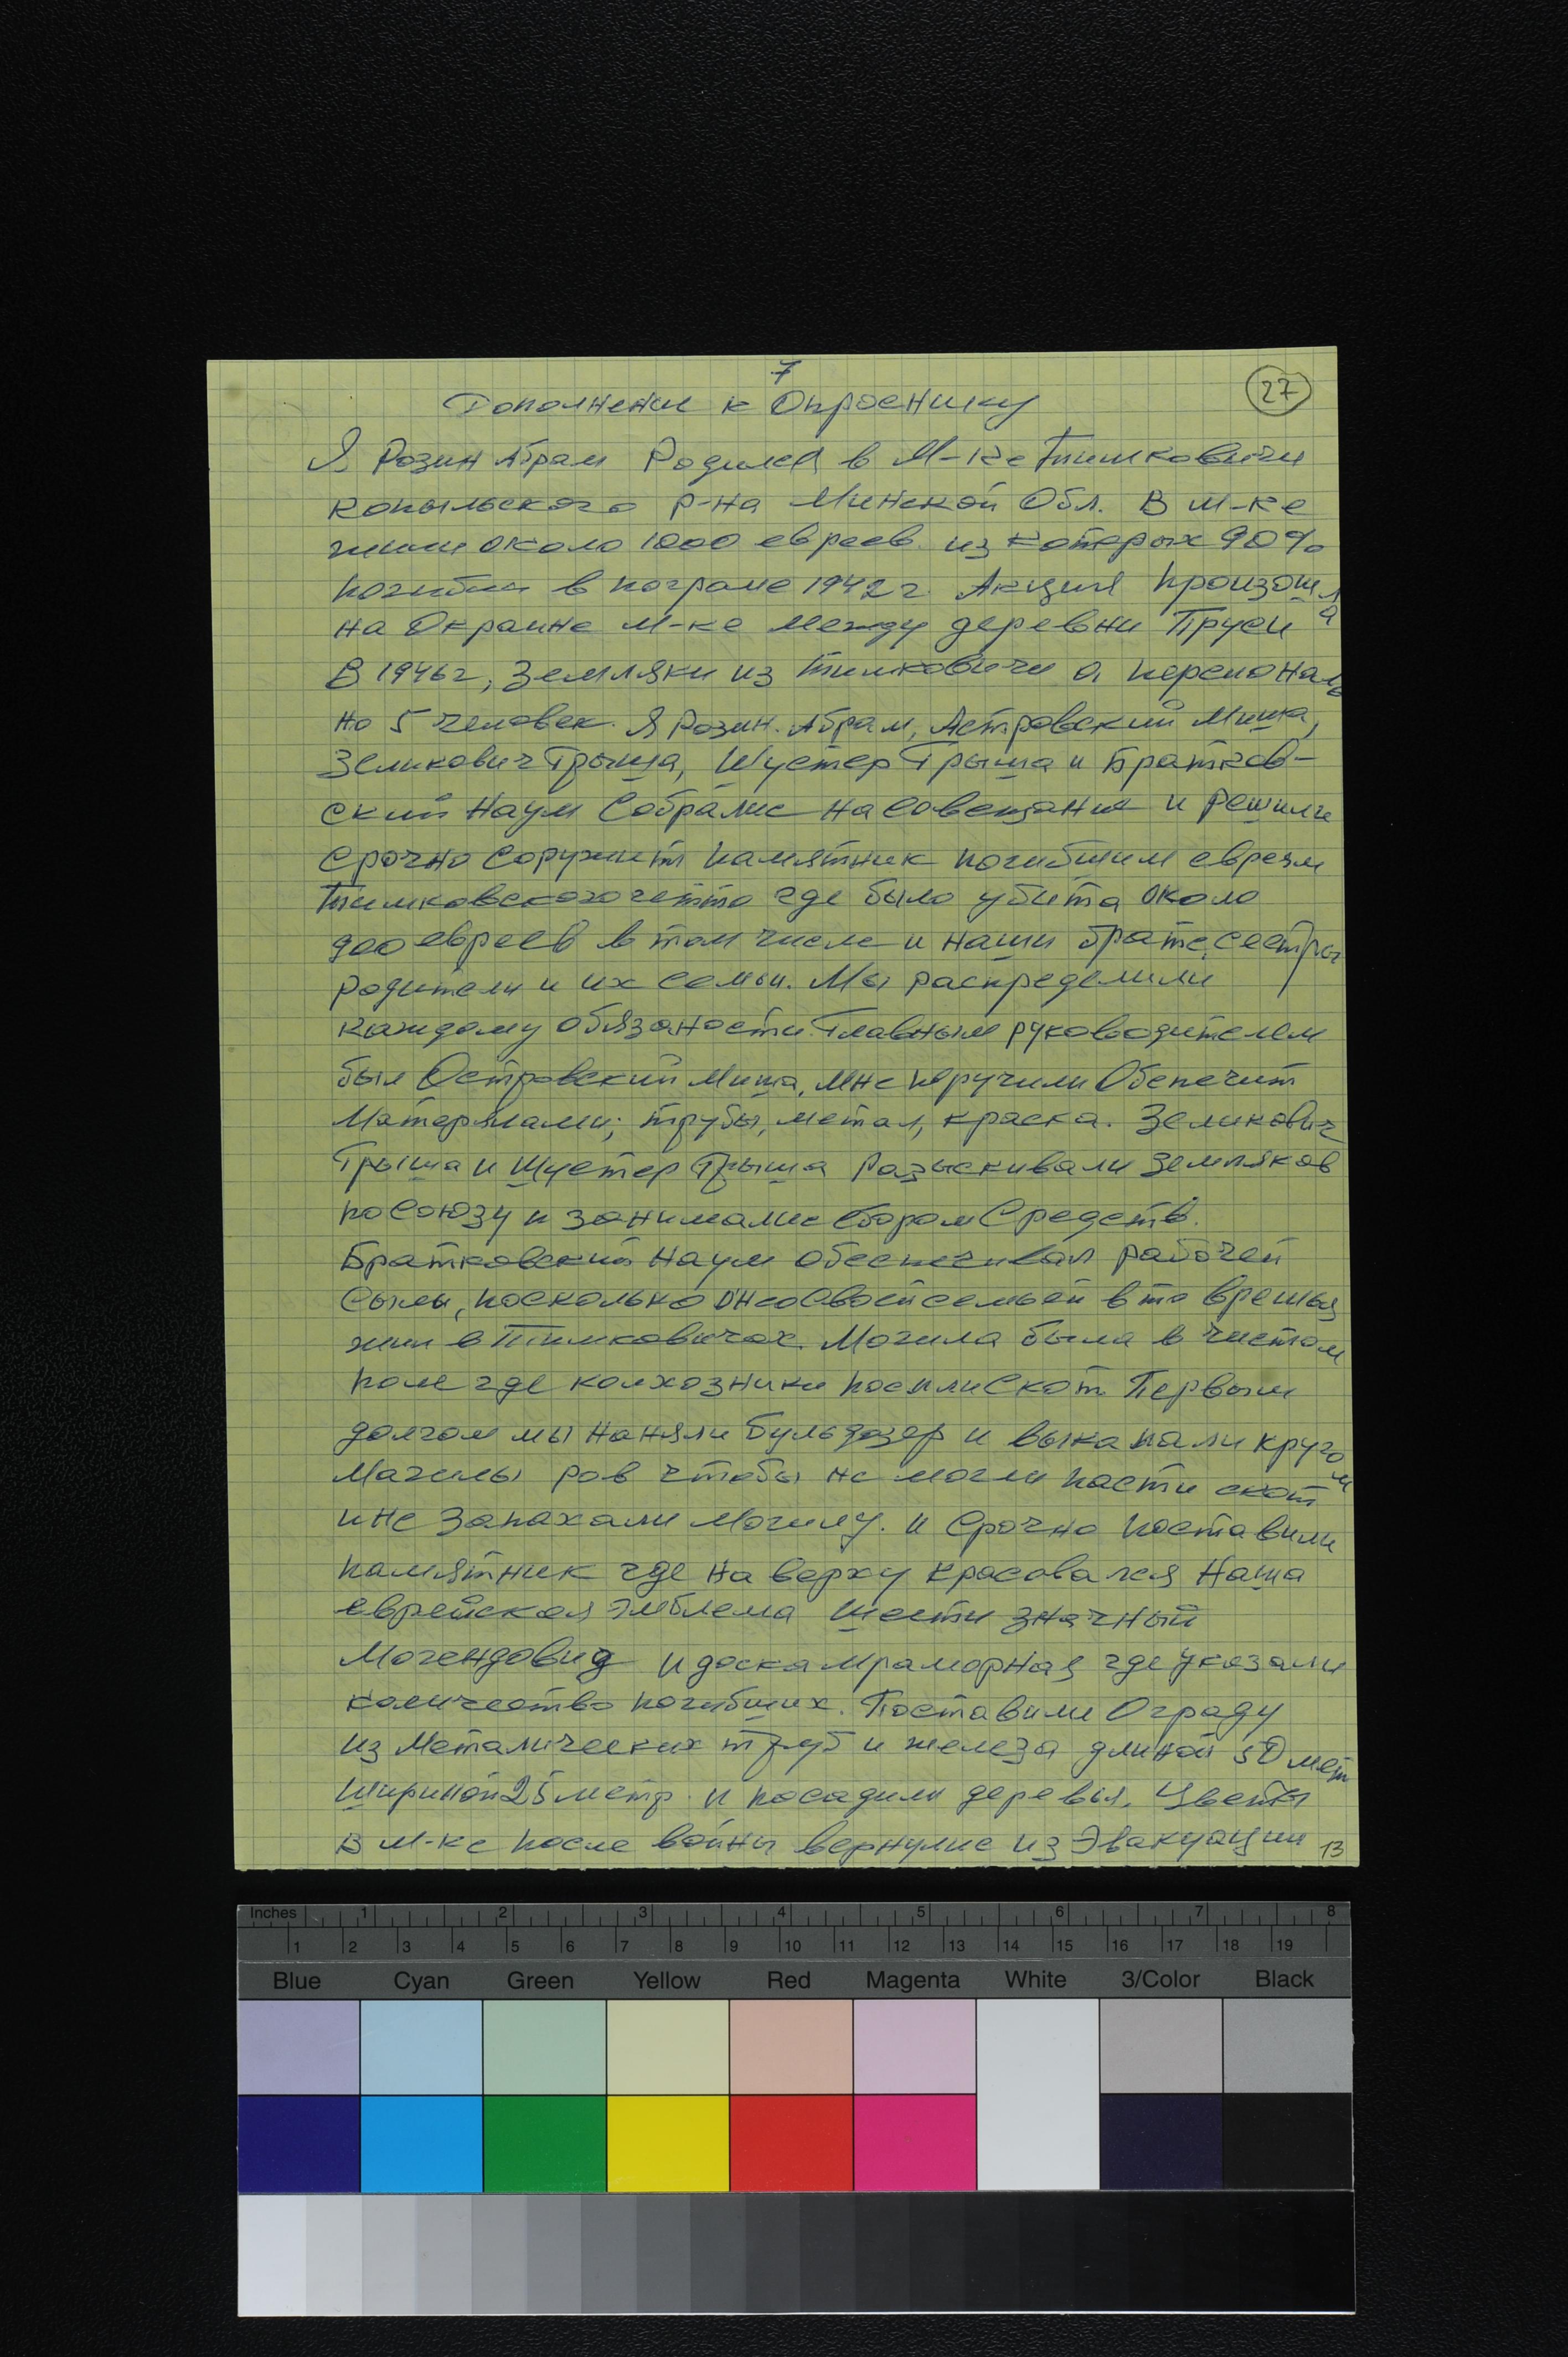 7
27
Дополнение к Опроснику
Я Розин Абрам Родился в М-ке Тимковичи
Копыльского р-на Минской Обл. В м-ке
жили около 1000 евреев из которых 90%
погибли в пограме 1942 г. Акция произошла
на Окраине м-ке между деревни Пруси
В 1946 г, Земляки из Тимковичи а персональ
но 5 человек. Я Розин. Абрам, Астровский Миша,
Зеликович Грыша, Шустер Грыша и Братков-
ский Наум Собрались на Совещание и решили
Срочно Соружит памятник погибшим евреям
Тимковского гетто где было убита около
900 евреев в том числе и наши братс, сестры
родители и их семьи. Мы распределили
каждому обязаности. Главным руководителем
был Островский Миша, мне поручили Обепечит
Матерялами; трубы, метал, краска. Зеликович
Грыша и Шустер Грыша Разыскивали Земляков
по Союзу и занимались Сбором Средств.
Братковский Наум обеспечивал рабочей
Силы, посколько он со своей семьей в то время
жил в Тимковичах. Могила была в чистом
поле где колхозники посли Скот. Первым
долгом мы наняли бульдозер и выкапали кругом
Магилы ров чтобы не могли пасти скот
и не Запахали Могилу. и Срочно поставили
памятник где на верху красовался Наша
еврейская эмблема шести значный
Могендовид и доска мраморная где указали
количество погибших. Поставили Ограду
из Металических труб и железа длиной 50 мет
шириной 25 метр. и посадили деревья. Цветы
В м-ке после войны вернулис из Эвакуации
13
Inches 1 2 3 4 5 6 7 8
1 2 3 4 5 6 7 8 9 10 11 12 13 14 15 16 17 18 19
Blue Cyan Green Yellow Red Magenta White 3/Color Black